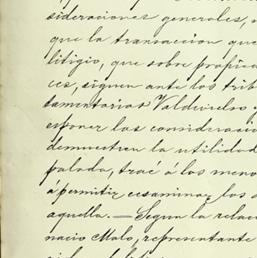 sideraciones generales,
que la transaccion que
litigio, que sobre propie
ces, siguen ante los trib
tamentarias Valdeirelso
esponer las consideracio
demuestran la utilidad
palada, trae á los meno
á permitir ecsaminar los
aquella.— Segun la relac
nacio Malo, representante